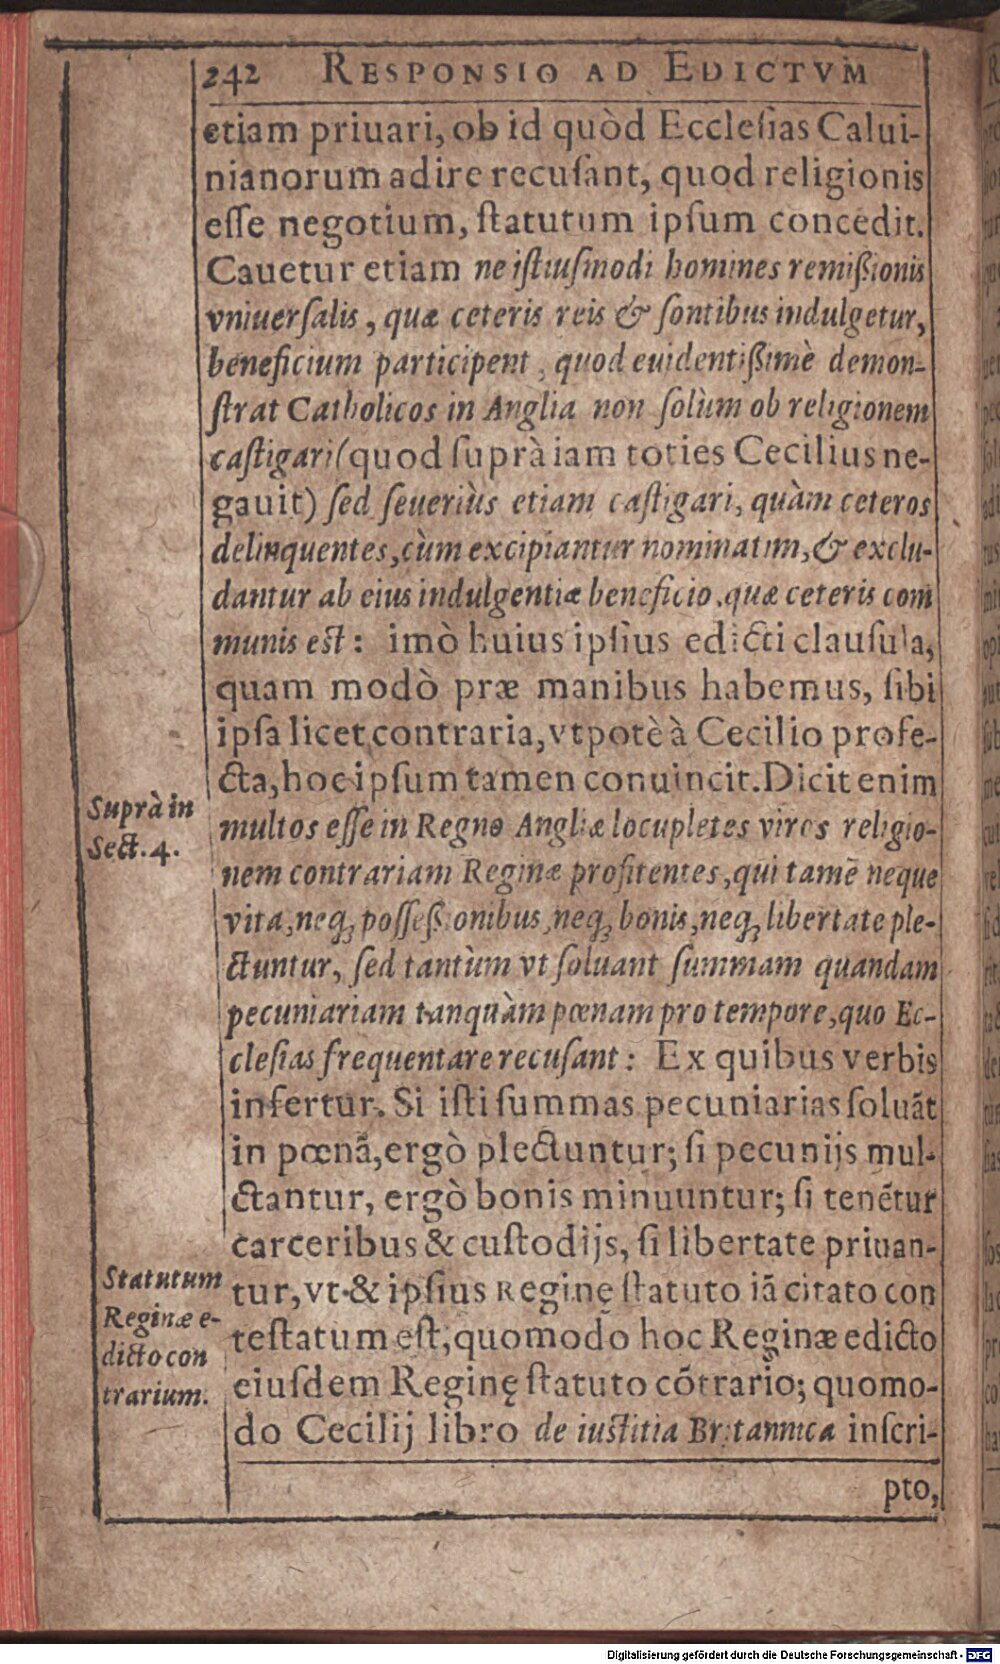 242 RESPONSIO AD EDICTVM
etiam priuari, ob id quòd Ecclesias Calui-
nianorum adire recusant, quod religionis
esse negotium, statutum ipsum concedit.
Cauetur etiam ne istiusmodi homines remißionis
vniuersalis, quæ ceteris reis & sontibus indulgetur,
beneficium participent, quod euidentißimè demon-
strat Catholicos in Anglia non solùm ob religionem
castigari (quod suprà iam toties Cecilius ne-
gauit) sed seueriùs etiam castigari, quàm ceteros
delinquentes, cùm excipiantur nominatim, & exclu-
dantur ab eius indulgentiæ beneficio, quæ ceteris com
munis est: imò huius ipsius edicti clausula,
quam modò præ manibus habemus, sibi
ipsa licet contraria, vtpotè à Cecilio profe-
cta, hoc ipsum tamen conuincit. Dicit enim
Suprà in
Sect. 4.
multos esse in Regno Angliæ locupletes viros religio-
nem contrariam Reginæ profitentes, qui tamē neque
vita, neq; possessionibus, neq; bonis, neq; libertate ple-
ctuntur, sed tantùm vt soluant summam quandam
pecuniariam tanquàm pœnam pro tempore, quo Ec-
clesias frequentare recusant: Ex quibus verbis
infertur. Si isti summas pecuniarias soluāt
in pœnā, ergò plectuntur; si pecunijs mul-
ctantur, ergò bonis minuuntur; si tenētur
carceribus & custodijs, si libertate priuan-
Statutum
Reginæ e-
dicto con
trarium.
tur, vt & ipsius Reginę statuto iā citato con
testatum est; quomodo hoc Reginæ edicto
eiusdem Reginę statuto cōtrario; quomo-
do Cecilij libro de iustitia Britannica inscri-
pto,
Digitalisierung gefördert durch die Deutsche Forschungsgemeinschaft - DFG